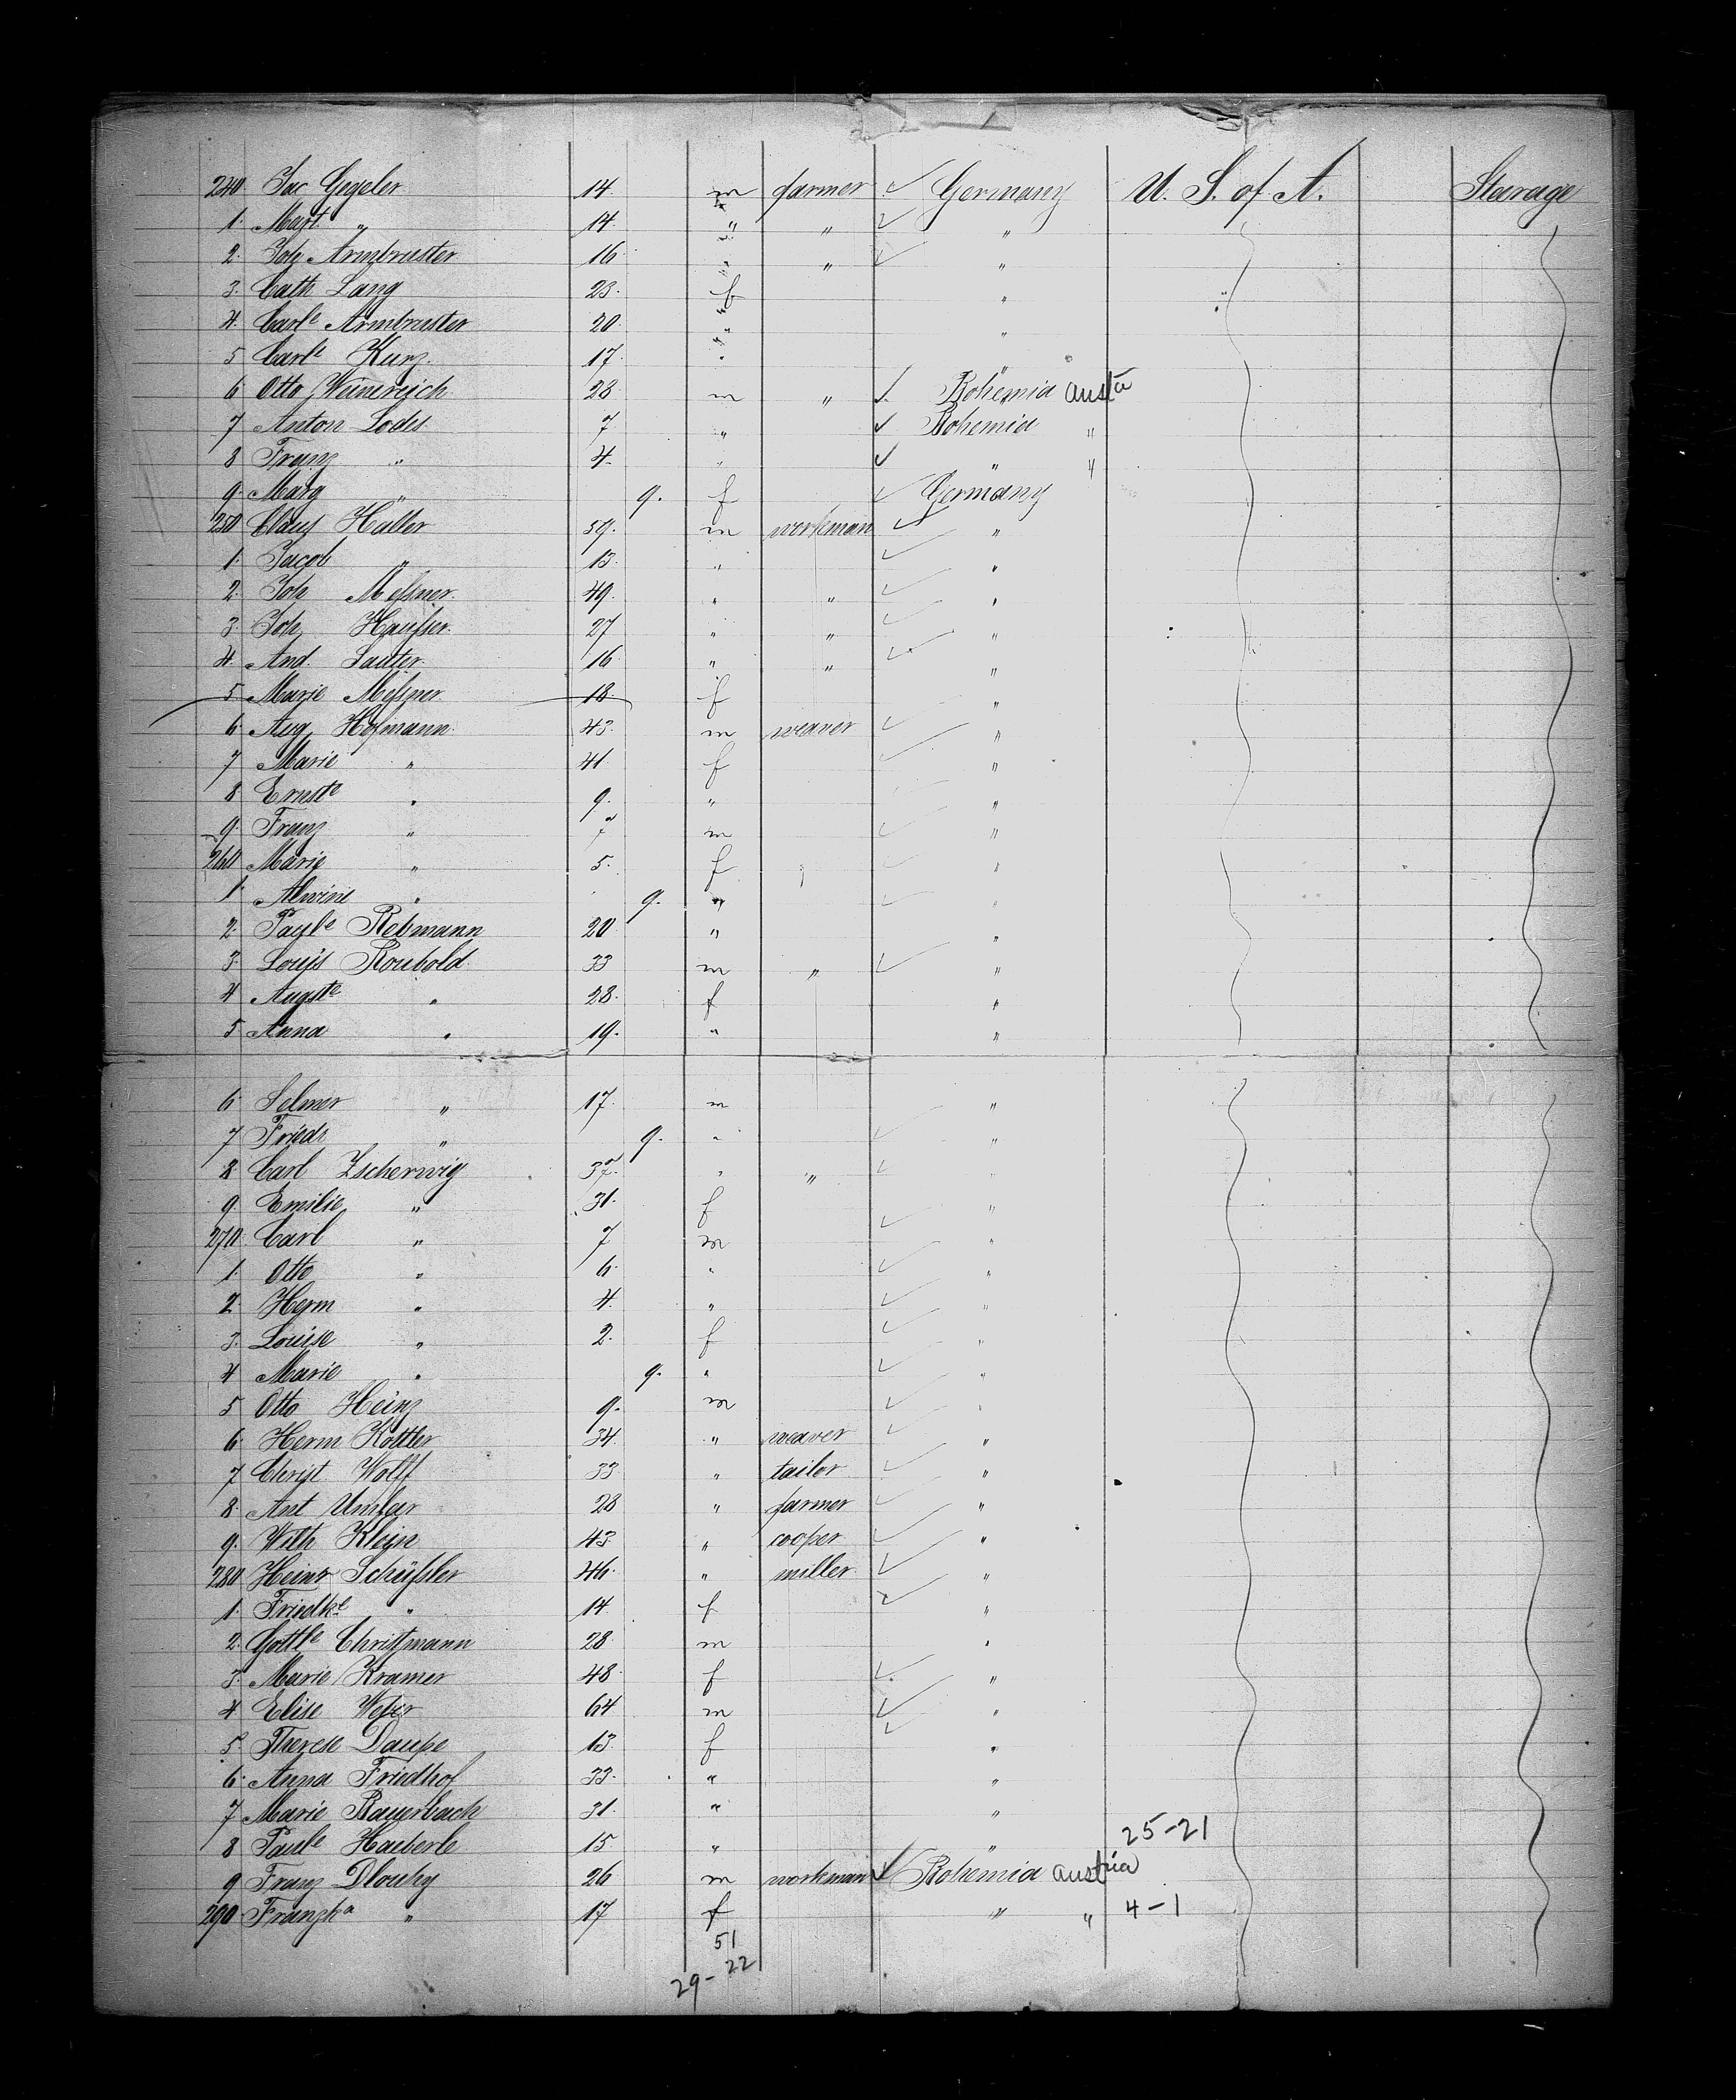 240 Jac Gegeler 14 m farmer ✓ Germany U. S. of A. Stearage
1. Mart " 14 " " ✓ "
2. Joh Armbruster 16 " " ✓ "
3. Cath Lang 23 f "
4. Carle Armbruster 20 " "
5 Carle Kurz 17 " "
6 Otto Weinereich 28 m " ✓ Bohemia Aust
7 Anton Lodes 7 " ✓ Bohemia "
8 Franz " 4 " ✓ " "
9. Marg " 9. f ✓ Germany
250 Claus Haller 59 m workman ✓ "
1. Jacob " 13 " ✓ "
2. Joh Meßner 49 " " ✓ "
3. Joh Haußer 27 " " ✓ "
4. And. Sauter 16 " " ✓ "
5 Marie Meßner 18 f "
6 Aug Hofmann 43 m weaver ✓ "
7 Marie " 41 f ✓ "
8 Ernste " 9. " "
9. Franz " 7 m ✓ "
260 Marie " 5. f ✓ "
1. Alwine " 9. " ✓ "
2. Paule Rebmann 20 " "
3. Louis Roubold 33 m " ✓ "
4 Auguste " 28. f "
5. Anna " 19. " "
6 Selmer " 17 m "
7 Friedr " 9. " ✓ "
8 Carl Zscherwig 37 " " ✓
9. Emilie " 31. f "
270 Carl " 7 m ✓ "
1. Otto " 6 " ✓ "
2. Herm " 4. " ✓ "
3. Louise " 2. f ✓ "
4 Marie " 9. " ✓ "
5 Otto Heinz 9. m ✓ "
6 Herm Kottler 34 " weaver ✓ "
7 Christ Wolff 33 " tailor ✓ "
8. Ant 28 " farmer ✓ "
9. Wilh Klein 43 " cooper ✓ "
280 Heinr Schüßler 46 " miller ✓ "
1. Friedke " 14 f ✓ "
2. Gottle Christmann 28 m "
3. Marie Kramer 48 f ✓ "
4 Elise Weber 64 m ✓ "
5. Therese Daupe 13 f ✓ "
6. Anna Friedhof 33. " "
7 Marie Bauerbach 31. " "
8 Paule Haeberle 15 " " 25-21
9 Franz Dlouhy 26 m workman ✓ Bohemia Austria
290 Franzka " 17 f " " 4-1
51
29-22